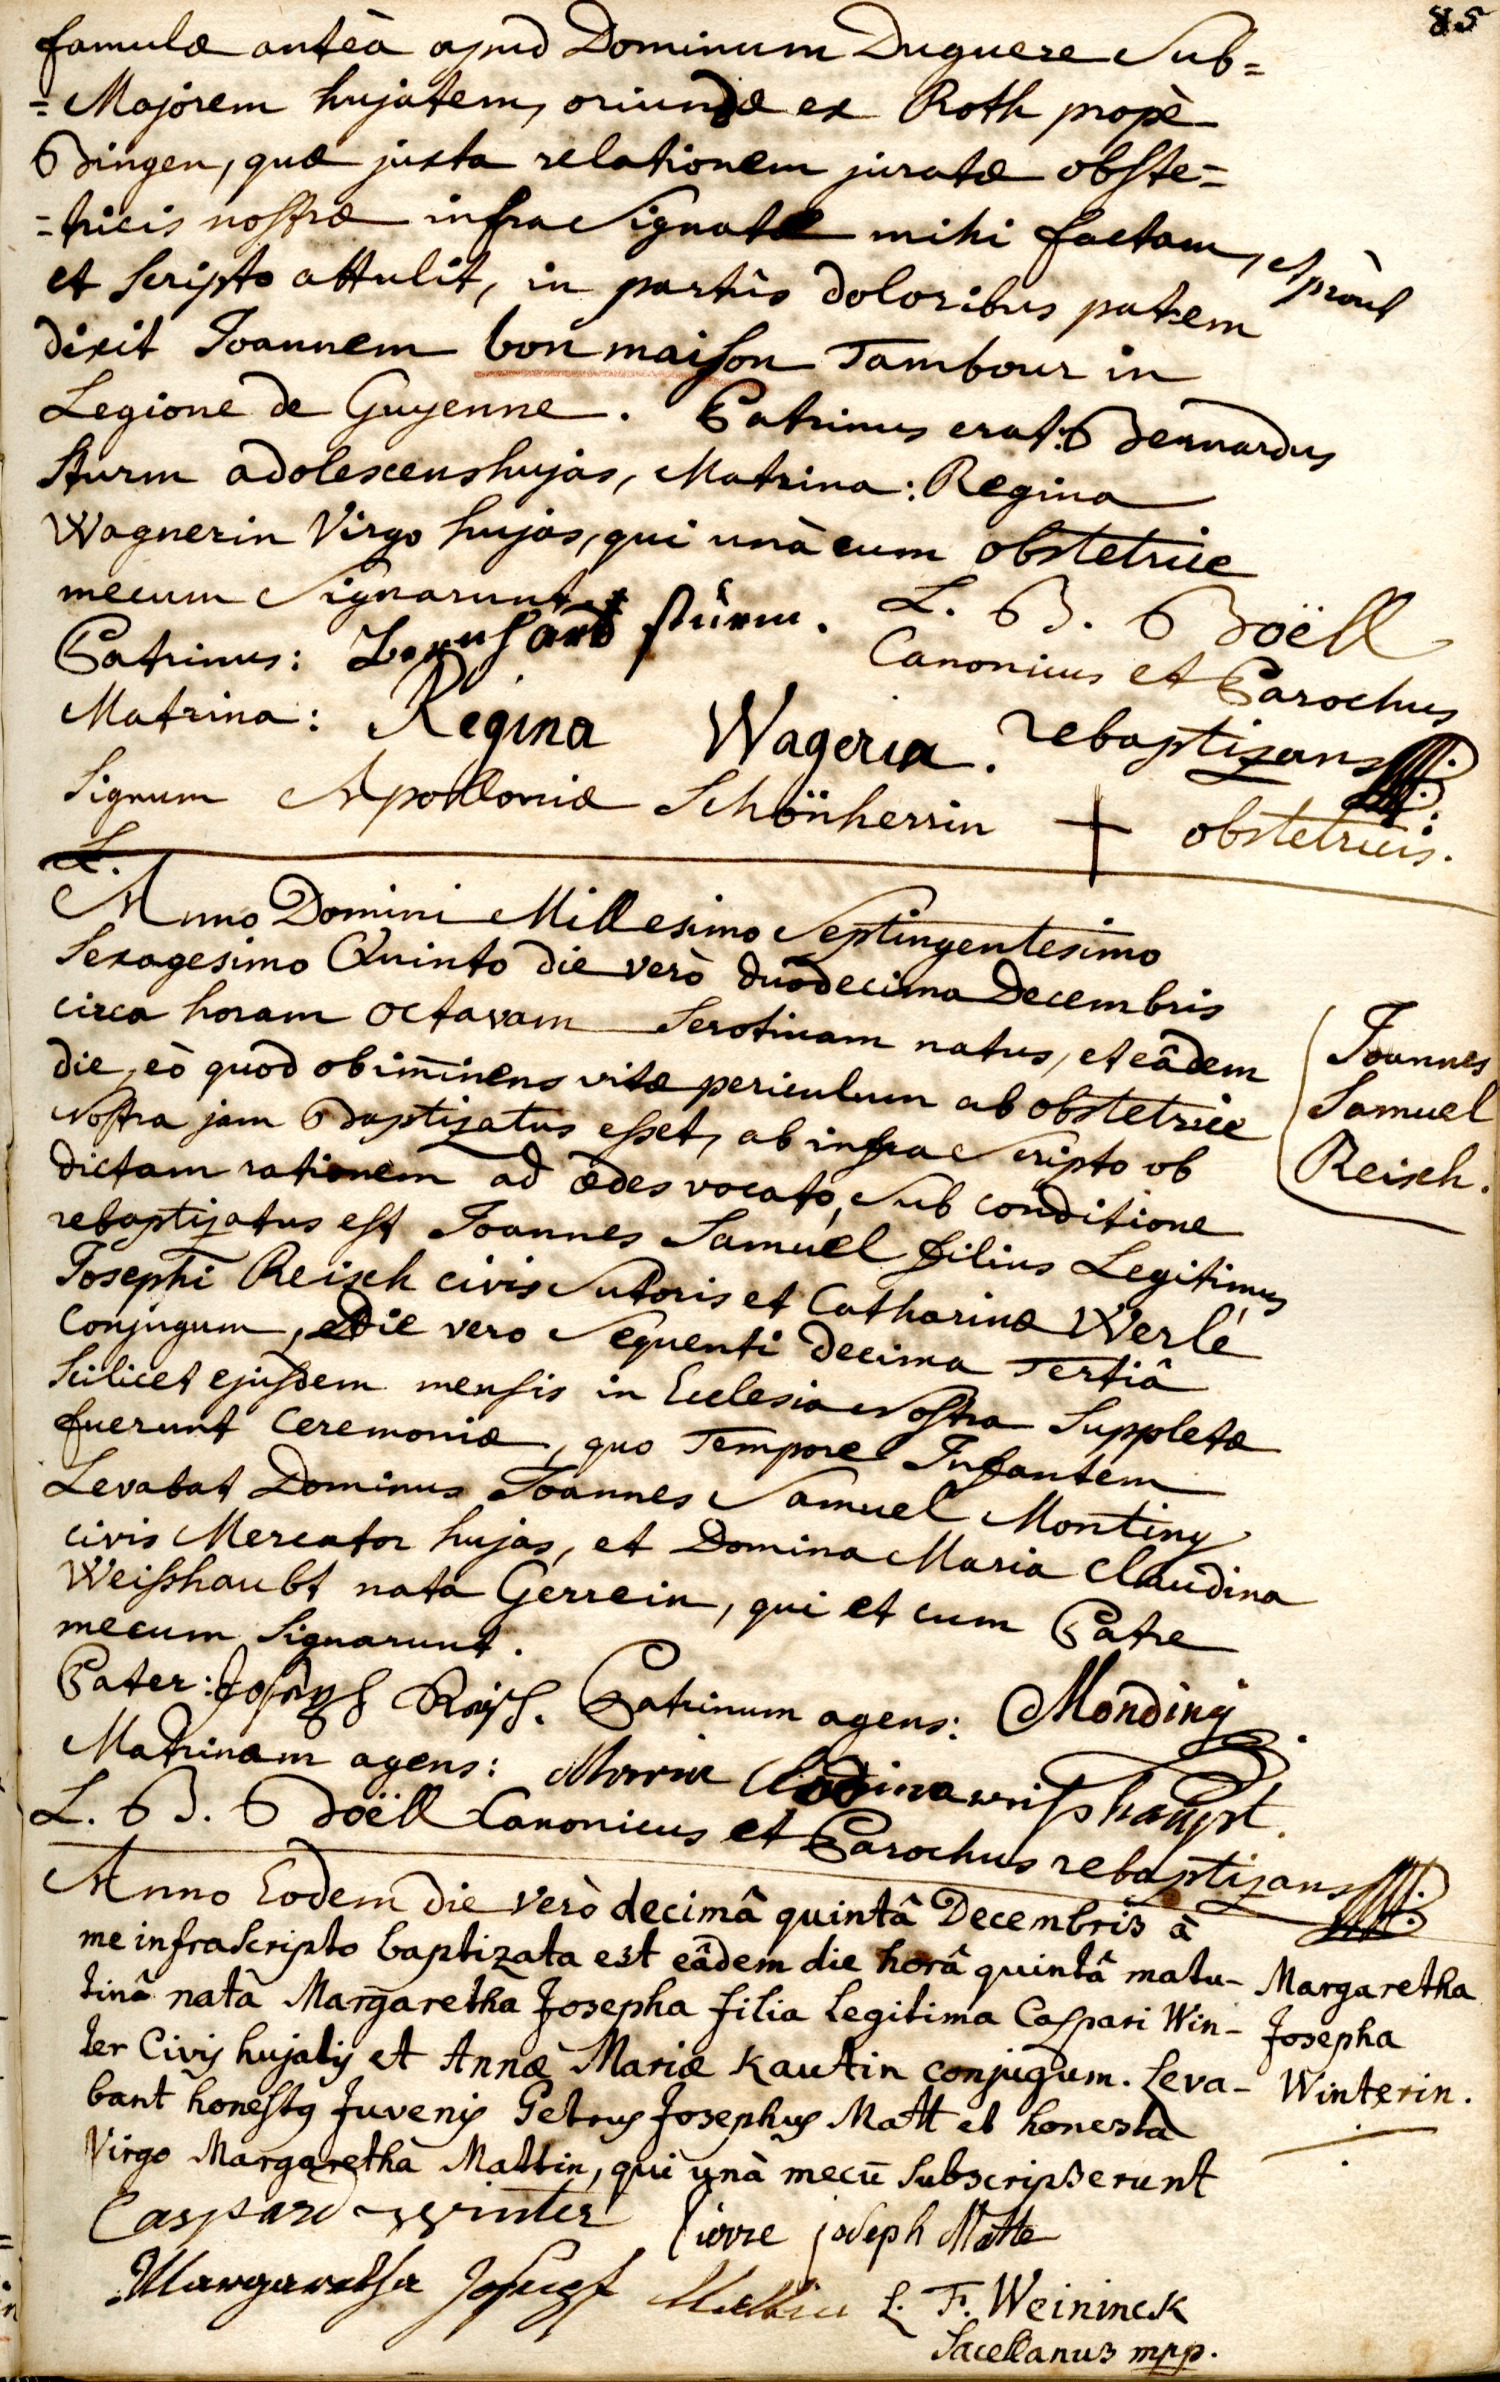 85
famulæ anteà apud Dominum Duguere Sub=
=Majorem hujatem, oriundæ ex Roth propè
Bingen, quæ juxta relationem juratæ obste=
=tricis nostræ infra Signatæ mihi factam, et prout
et scripto attulit, in partûs doloribus patrem
dixit Joannem bon maison Tambour in
Legione de Guyenne. Patrinus erat: Bernardus
Sturm adolescens hujas, Matrina: Regina
Wagnerin Virgo hujas, qui unà cum obstetrice
mecum Signarunt.
Patrinus: Bernhard stürm. L. B. Boëll
Canonicus et Parochus
Matrina: Regina Wageria. rebaptizans
Signum Apolloniæ Schönherrin + obstetricis.
L.
Anno Domini Millesimo Septingentesimo
Sexagesimo Quinto die verò duodecima Decembris
circa horam octavam Serotinam natus, et eâdem
die, eò quod ob im̄inens vitæ periculum ab obstetrice
Nostra jam Baptizatus esset, ab infra Scripto ob
dictam rationem ad ædes vocato, Sub conditione
rebaptizatus est Joannes Samuel filius Legitimus
Josephi Reisch civis Sutoris et Catharinæ Werlé
Conjugum, Die vero Sequenti decima Tertiâ
Scilicet ejusdem mensis in Ecclesia Nostra Suppletæ
fuerunt Ceremoniæ, quo Tempore Infantem
Levabat Dominus Joannes Samuel Montiny
civis Mercator hujas, et Domina Maria Claudina
Weishaubt nata Gerrein, qui et cum Patre
mecum Signarunt.
Joannes
Samuel
Reisch.
Pater: Joseph Reisch. Patrinum agens: Mondiny
Matrinam agens: Maria Clodina weishaupt.
L. B. Boëll Canonicus et Parochus rebaptizans
Anno Eodem die verò decimâ quintâ Decembris à
me infrascripto baptizata est eâdem die horâ quintâ matu-
tinâ nata Margaretha Josepha filia legitima Caspari Win-
ter Civis hujatis et Annæ Mariæ Kautin conjugum. Leva-
bant honestus Juvenis Petrus Josephus Matt et honesta
Virgo Margaretha Mattin, qui unà mecū subscripserunt
Margaretha
Josepha
Winterin.
Caspard Winter Pierre joseph Matte
Margaretha Josepha Mattin L. F. Weininck
Sacellanus mpp.